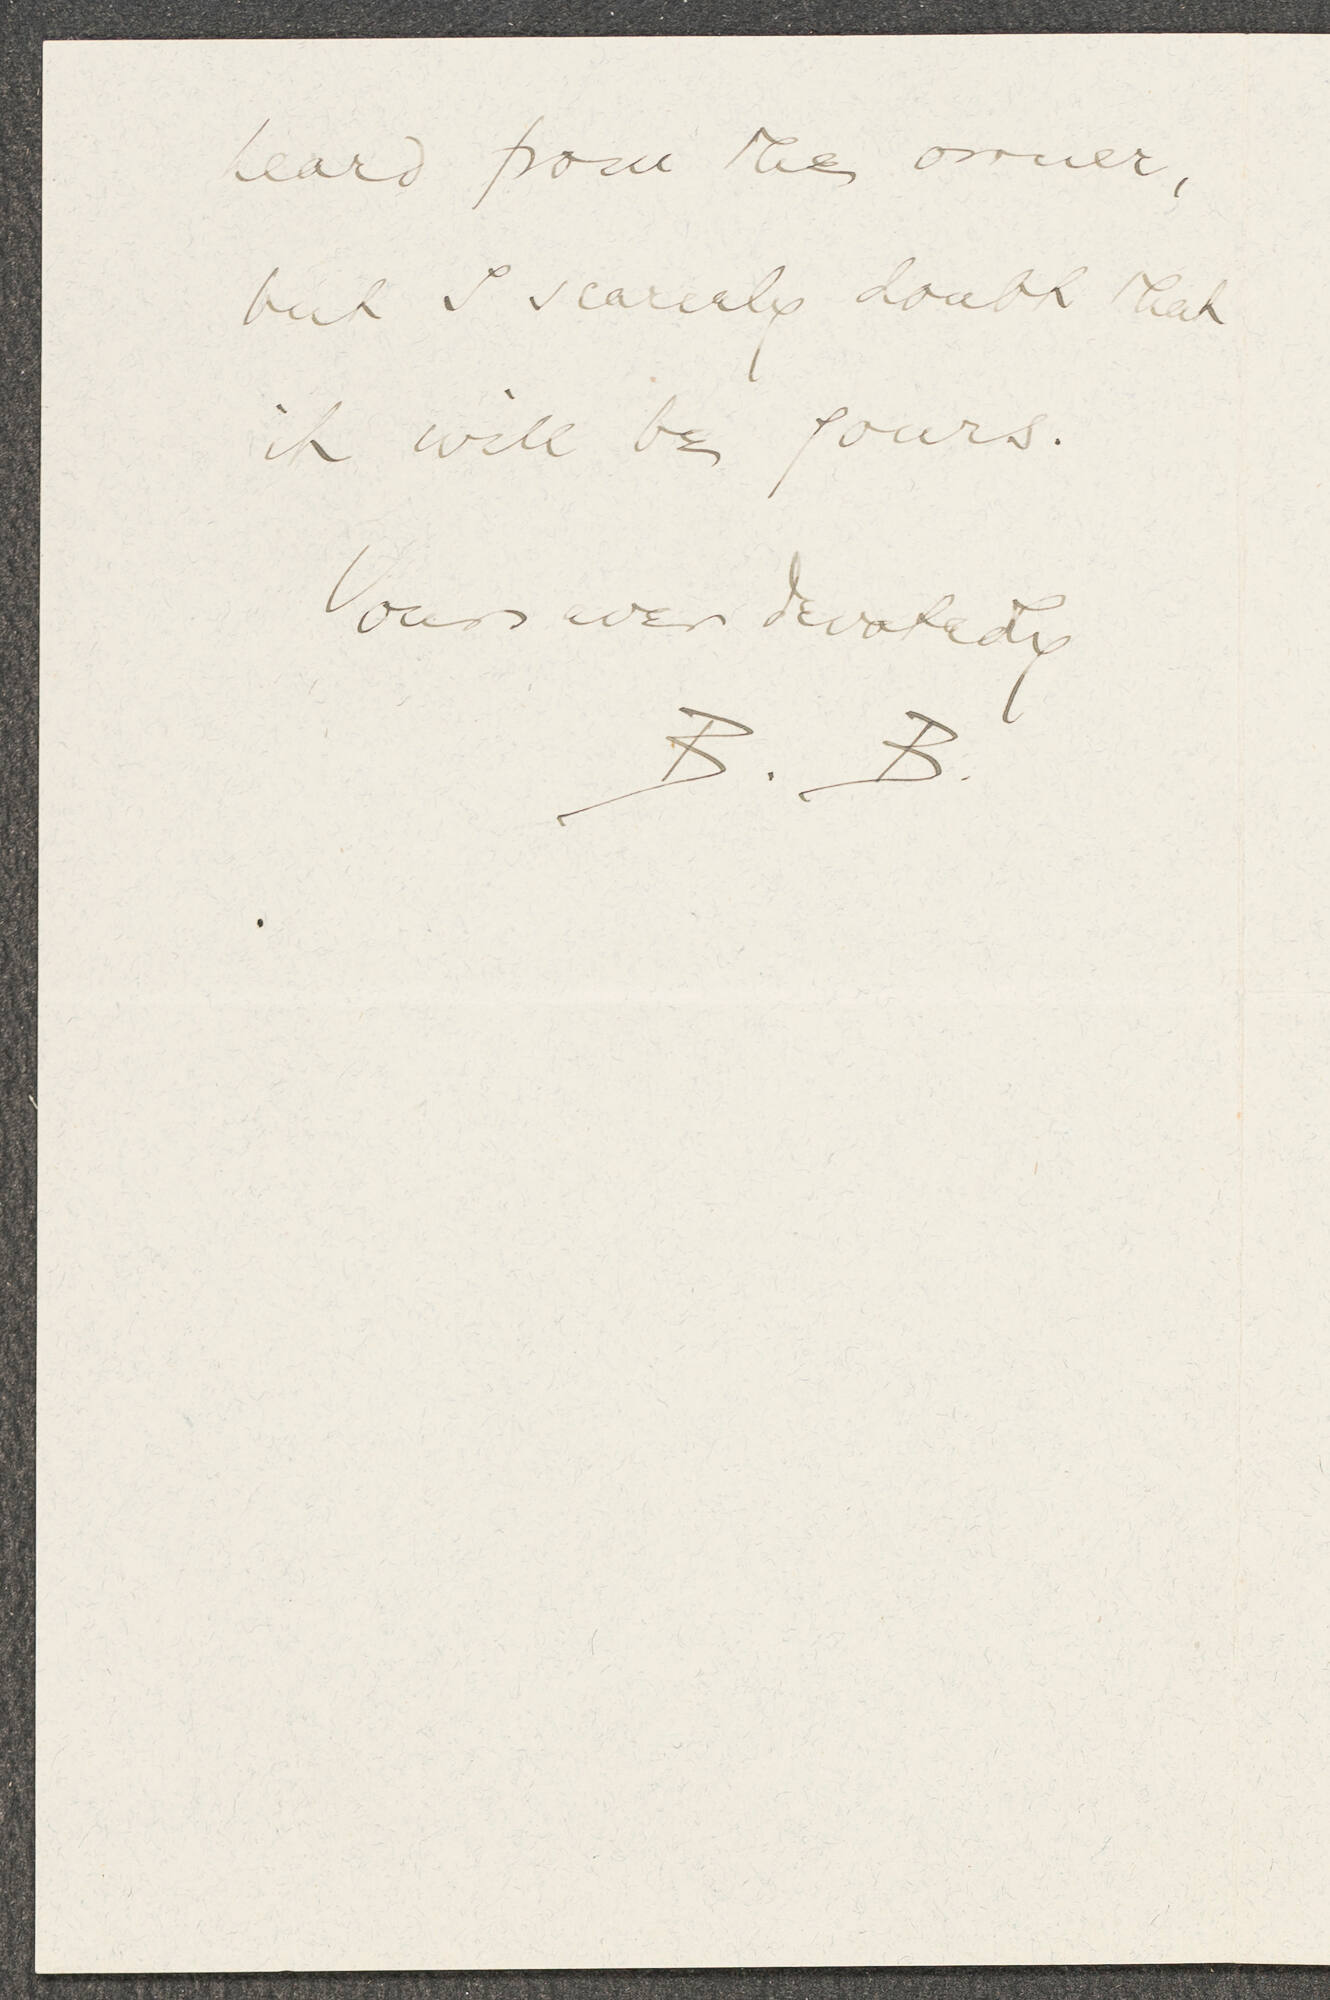 heard from the owner,
but I scarcely doubt that
it will be yours.
Yours ever devotedly
B. B.